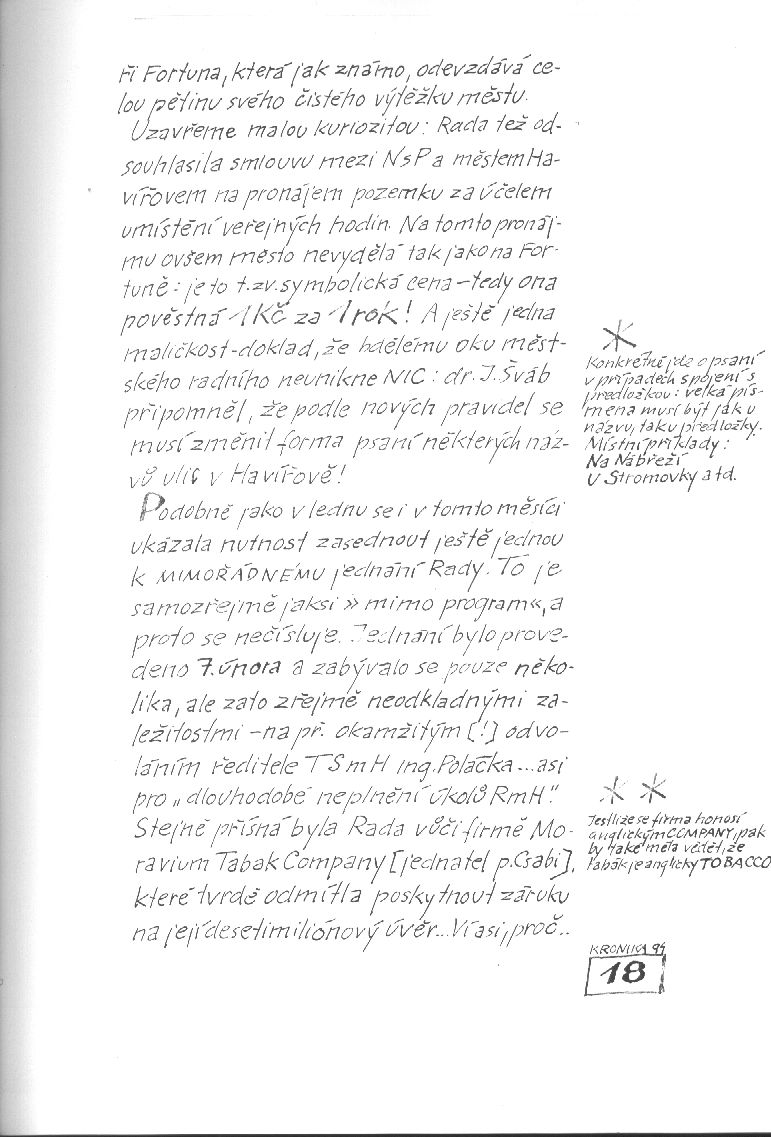 ři Fortuna, která jak známo, odevzdává ce-
lou pětinu svého čistého výtěžku městu.
Uzavřeme malou kuriozitou: Rada též od-
souhlasila smlouvu mezi NsP a městem Ha-
vířovem na pronájem pozemku za účelem
umístění veřejných hodin. Na tomto pronáj-
mu ovšem město nevydělá tak jako na For-
tuně: je to t.zv. symbolická cena – tedy ona
pověstná 1 Kč za 1 rok! A ještě jedna
maličkost - doklad, že bdělému oku měst-
ského radního neunikne NIC: dr. J. Šváb
připomněl, že podle nových pravidel se
musí změnit forma psaní některých náz-
vů ulic v Havířově!
Podobně jako v lednu se i v tomto měsíci
ukázala nutnost zasednout ještě jednou
k MIMOŘÁDNÉMU jednání Rady. To je
samozřejmě jaksi » mimo program«, a
proto se nečísluje. Jednání bylo prove-
deno 7. února a zabývalo se pouze něko-
lika, ale zato zřejmě neodkladnými zá-
ležitostmi – na př. okamžitým [!] odvo-
láním ředitele TSmH ing. Poláčka... asi
pro „dlouhodobé neplnění úkolů RmH".
Stejně přísná byla Rada vůči firmě Mo-
ravium Tabak Company [jednatel p. Csabi],
které tvrdě odmítla poskytnout záruku
na její desetimiliónový úvěr... Ví asi, proč..
*
Konkrétně jde o psaní
v případech spojení s
předložkou: velká pís-
mena musí být jak u
názvu, tak u předložky.
Místní příklady:
Na Nábřeží
U Stromovky atd.
* *
Jestliže se firma honosí
anglickým COMPANY, pak
by také měla vědět, že
tabák je anglicky TOBACCO
KRONIKA 94
18